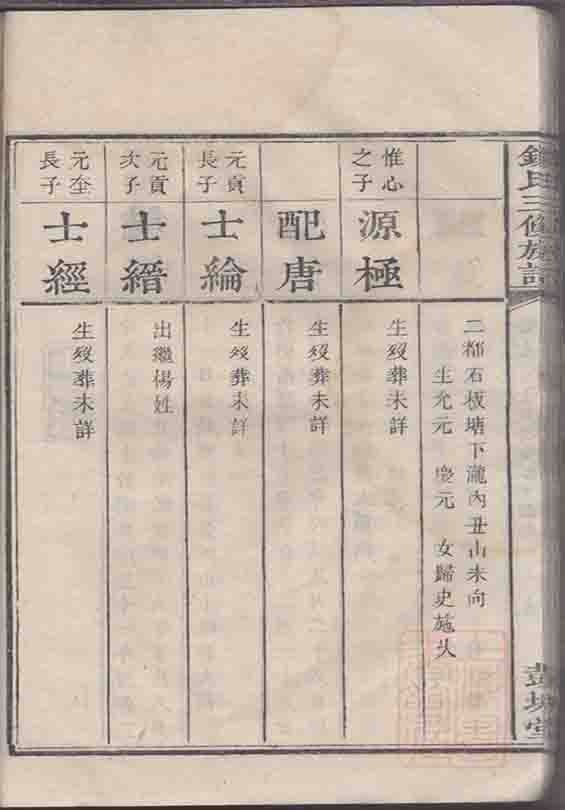 錢氏三修族譜
彭城堂
二都石板塘下瀧內丑山未向
生允元 慶元 女歸史施
惟心
之子
源極
生殁葬未詳
配唐
生殁葬未詳
元貢
長子
士綸
生殁葬未詳
元貢
次子
士縉
出繼楊姓
元奎
長子
士經
生殁葬未詳